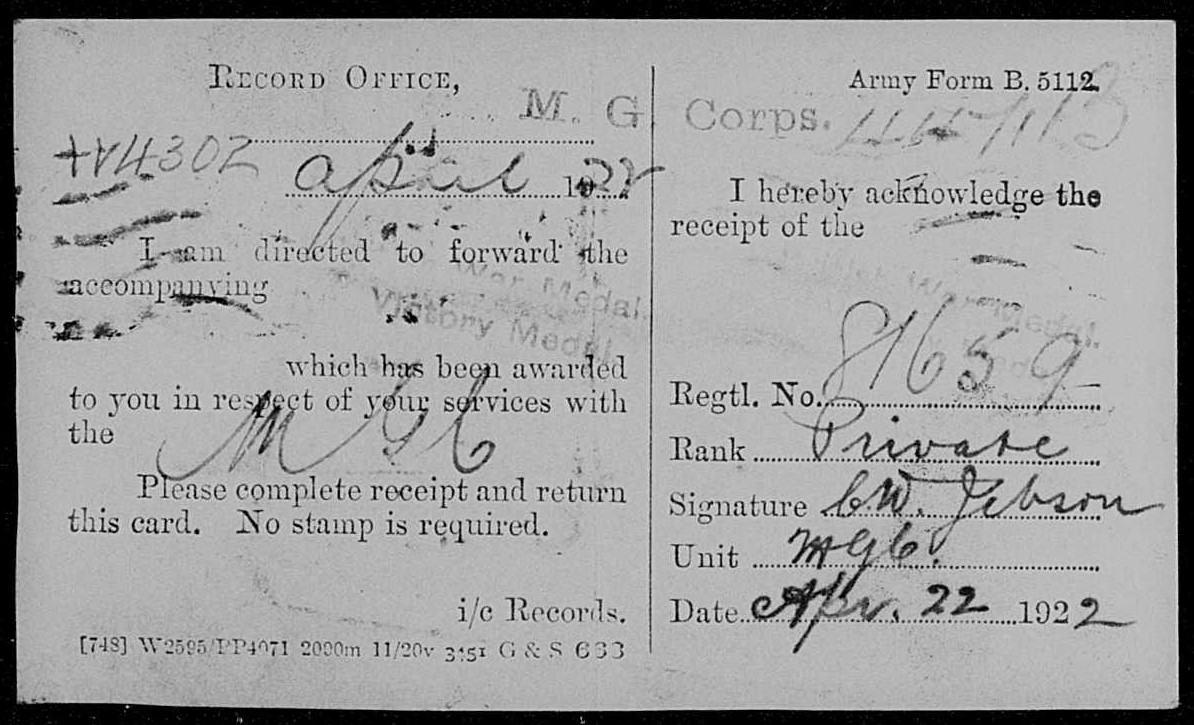 RECORD OFFICE,
M. G. Corps.
April 1922
I am directed to forward the
accompanying
War Medal.
Victory Medal.
which has been awarded
to you in respect of your services with
the M G C
Please complete receipt and return
this card. No stamp is required.
i/c Records.
[748] W2595/PP4071 2000m 11/20v 3151 G & S 633
Army Form B. 5112.
I hereby acknowledge the
receipt of the
War Medal.
Regtl. No. 81659
Rank Private
Signature C.W. Jebson
Unit MGC.
Date Apr. 22 1922